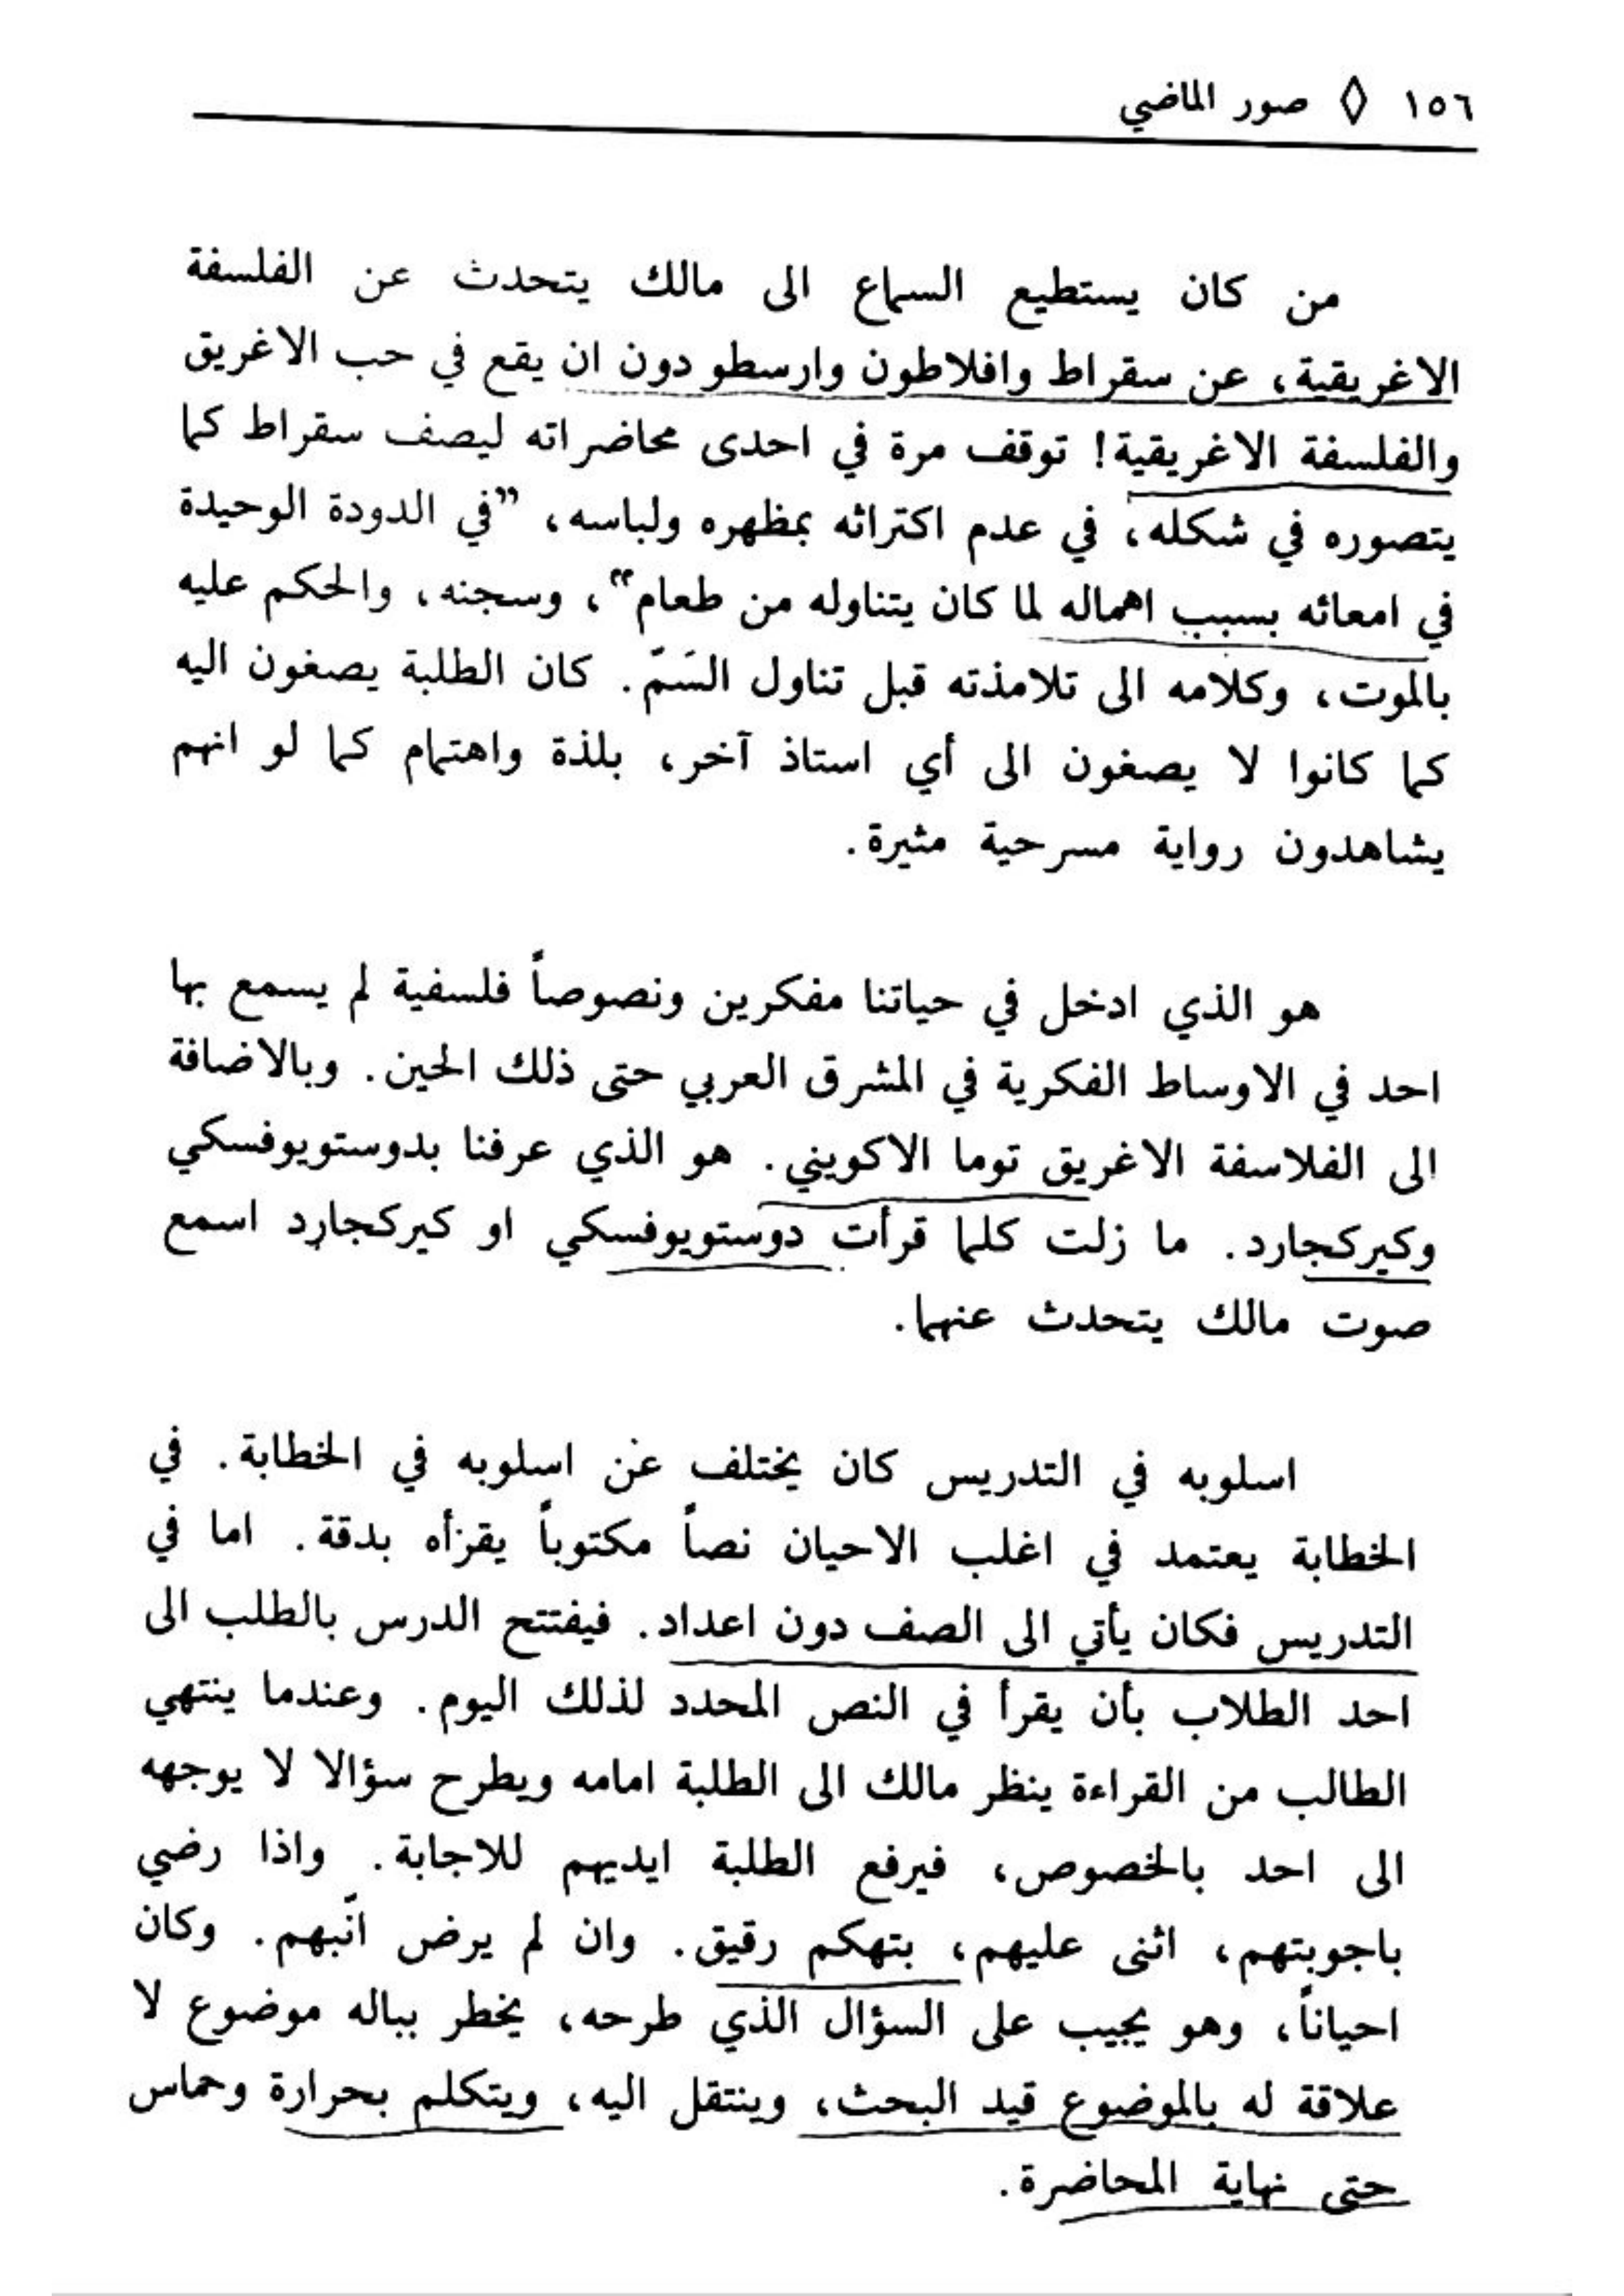 ١٥٦ ◊ صور الماضي
من كان يستطيع السماع الى مالك يتحدث عن الفلسفة
الاغريقية، عن سقراط وافلاطون وارسطو دون ان يقع في حب الاغريق
والفلسفة الاغريقية! توقف مرة في احدى محاضراته ليصف سقراط كما
يتصوره في شكله، في عدم اكتراثه بمظهره ولباسه، ”في الدودة الوحيدة
في امعائه بسبب اهماله لما كان يتناوله من طعام“، وسجنه، والحكم عليه
بالموت، وكلامه الى تلامذته قبل تناول السَمّ. كان الطلبة يصغون اليه
كما كانوا لا يصغون الى أي استاذ آخر، بلذة واهتمام كما لو انهم
يشاهدون رواية مسرحية مثيرة.
هو الذي ادخل في حياتنا مفكرين ونصوصاً فلسفية لم يسمع بها
احد في الاوساط الفكرية في المشرق العربي حتى ذلك الحين. وبالاضافة
الى الفلاسفة الاغريق توما الاكويني. هو الذي عرفنا بدوستويوفسكي
وكيركجارد. ما زلت كلما قرأت دوستويوفسكي او كيركجارد اسمع
صوت مالك يتحدث عنهما.
اسلوبه في التدريس كان يختلف عن اسلوبه في الخطابة. في
الخطابة يعتمد في اغلب الاحيان نصاً مكتوباً يقرأه بدقة. اما في
التدريس فكان يأتي الى الصف دون اعداد. فيفتتح الدرس بالطلب الى
احد الطلاب بأن يقرأ في النص المحدد لذلك اليوم. وعندما ينتهي
الطالب من القراءة ينظر مالك الى الطلبة امامه ويطرح سؤالا لا يوجهه
الى احد بالخصوص، فيرفع الطلبة ايديهم للاجابة. واذا رضي
باجوبتهم، اثنى عليهم، بتهكم رقيق. وان لم يرض انّبهم. وكان
احياناً، وهو يجيب على السؤال الذي طرحه، يخطر بباله موضوع لا
علاقة له بالموضوع قيد البحث، وينتقل اليه، ويتكلم بحرارة وحماس
حتى نهاية المحاضرة.